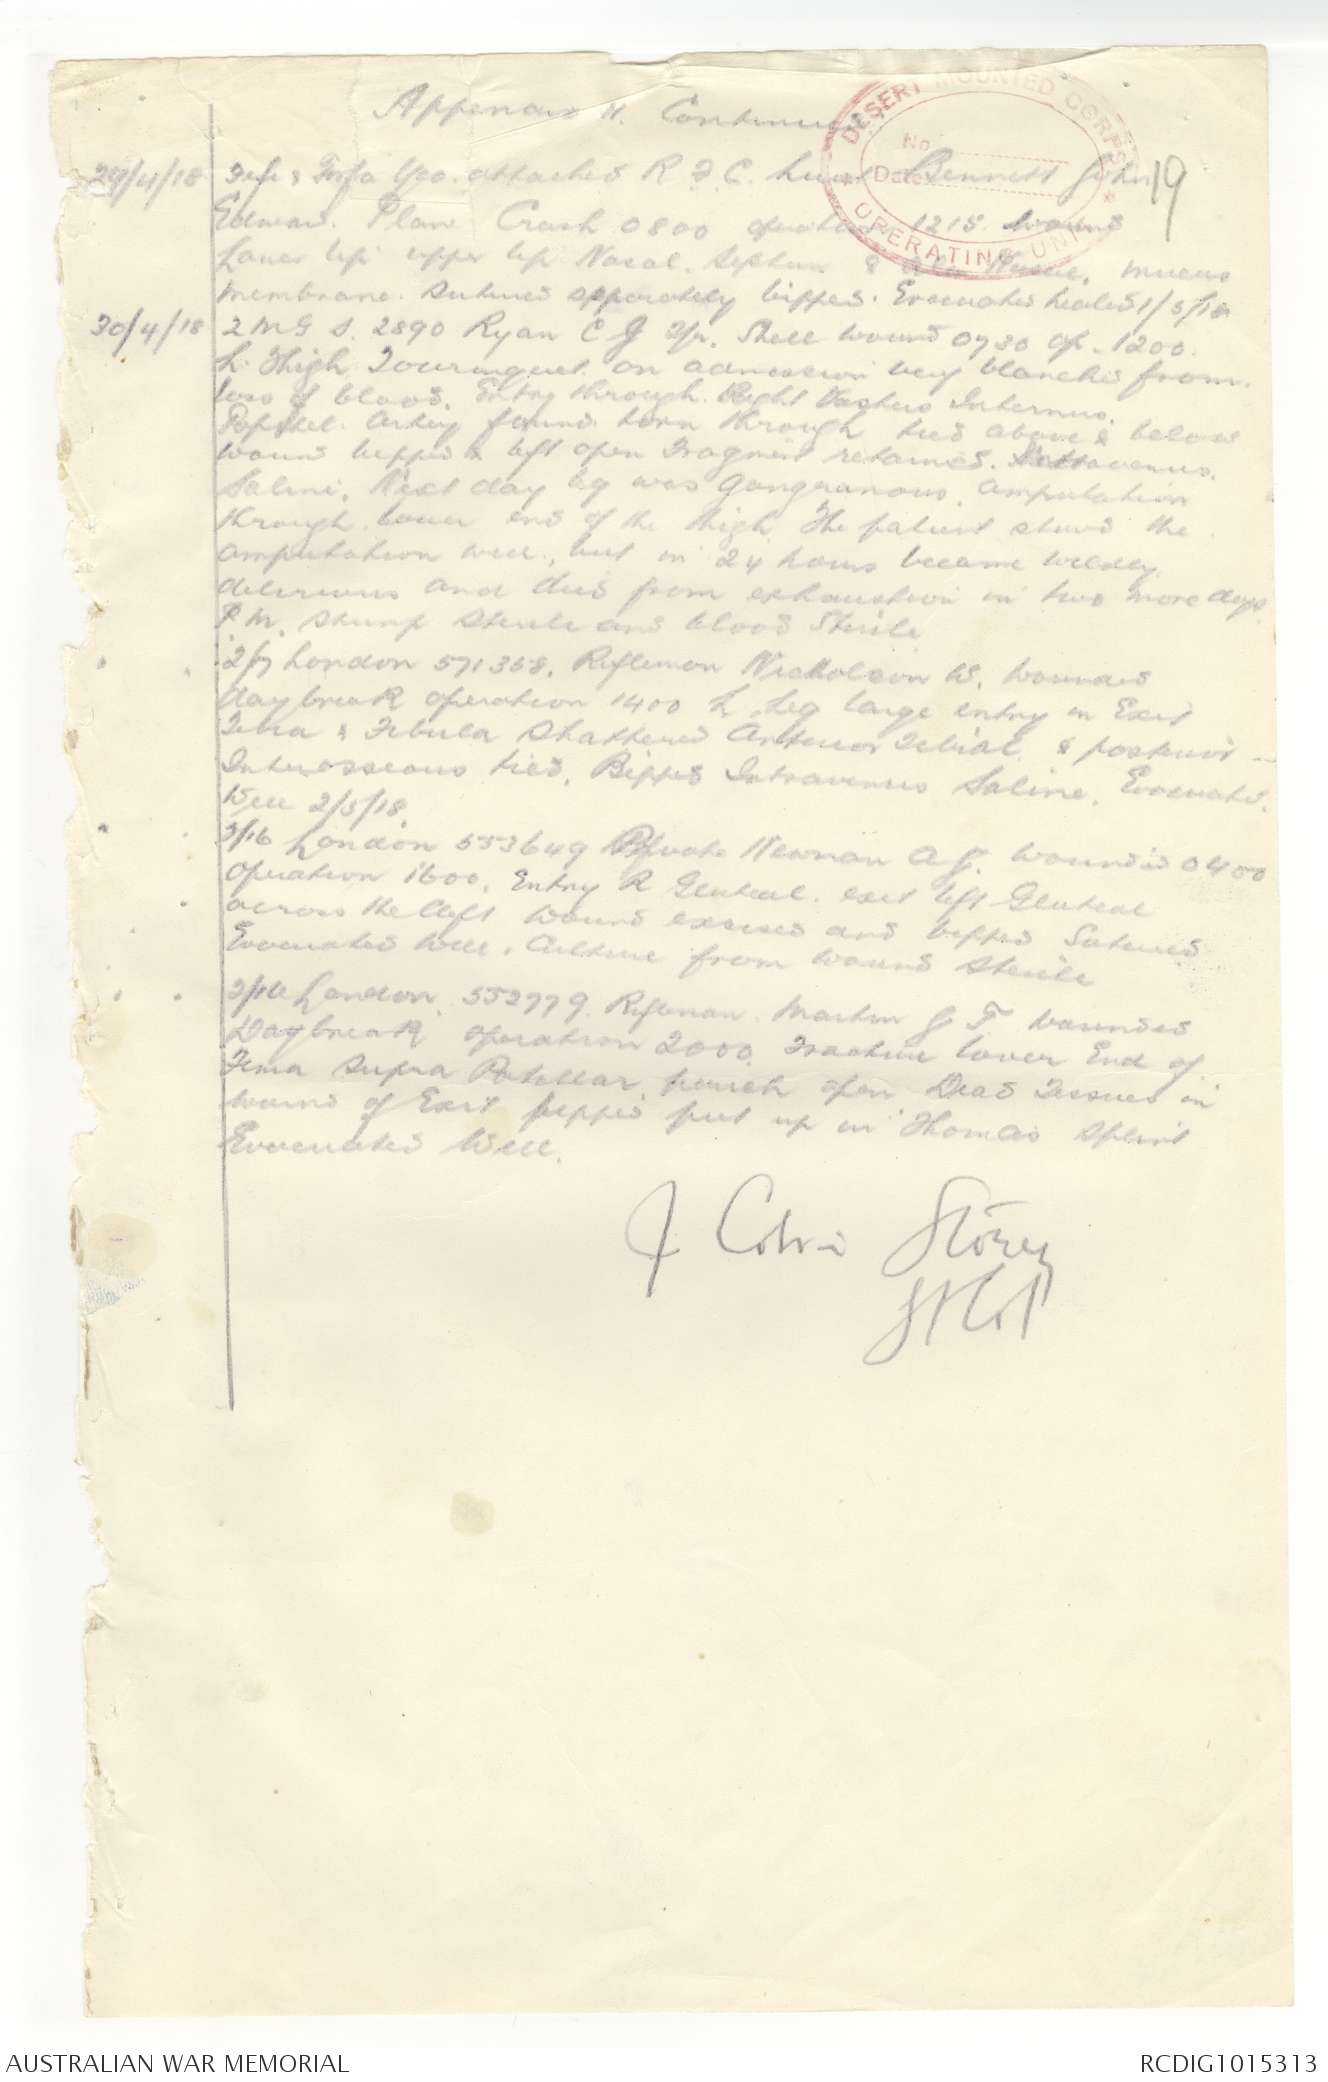 Appendix H. Continued
DESERT MOUNTED CORPS
No
Date
OPERATING UNIT
19
29/4/18 Fife & Forfa Yeo. attached R F C. Lieut Bennett John
Edward. Plane Crash 0800 operation 1215. wound
Lower lip upper lip Nasal. Septum & mucus
membrane. Sutured sepperately bipped. Evacuated healed 1/5/18
30/4/18 2 M G S. 2890 Ryan C J Tpr. Shell wound 0730 op. 1200.
L. Thigh Tourniquet on admission very blanched from
loss of blood. Entry through Right Vastus Internus.
Poplitel Artery found torn through tied above & below
wound bipped & left open Fragment retained. Intravenus.
Saline. Next day leg was gangrenous. amputation
through lower end of the thigh. The patient stood the
amputation well, but in 24 hours became weakly
delirious and died from exhaustion in two more days.
P M. Stump Sterile and blood Sterile
2/17 London 571358. Rifleman Nicholson W. wounded
daybreak operation 1400 L Leg large entry in Exit
Tibia & Fibula Shattered Anterior Tibial & posterior
Interosseous tied. Bipped Intravenus Saline. Evacuated.
Well 2/5/18.
2/16 London 553649 Private Newnan A J. wounded 0400
operation 1600. Entry R Gluteal. exit left Gluteal
across the cleft wound excised and bipped Sutured
Evacuated well. Culture from wound Sterile
2/16 London. 552779. Rifleman Martin G F wounded
Daybreak operation 2000. Fracture lower End of
Fema Supra Patellar pouch open Dead Tissues in
wound of Exit bipped put up in Thomas Splint
Evacuated Well.
J Colvin Storey
AUSTRALIAN WAR MEMORIAL
RCDIG1015313